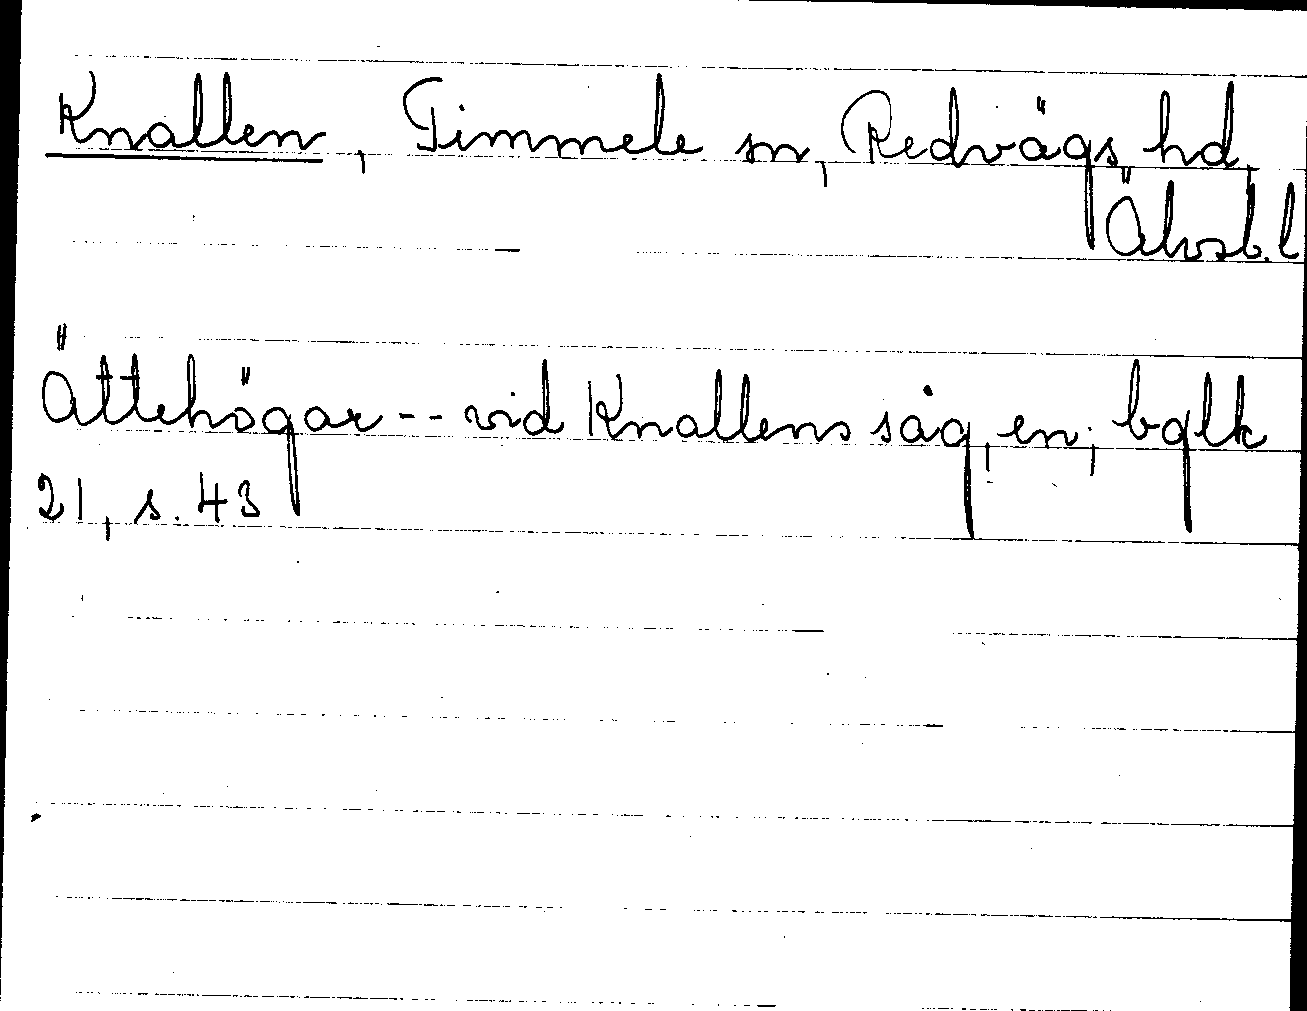 Knallen, Timmele sn, Redvägs hd,
Älvsb. l
Ättehögar -- vid Knallens såg, en; bglk
21, s. 43